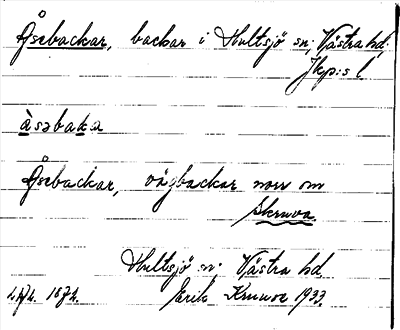 Åsebackar, backar i Hultsjö sn; Västra hd;
Jkp:s l
åsəbaka
Åsebackar, vägbackar norr om
Skruva.
Hultsjö sn. Västra hd.
Erik Knuve 1933.